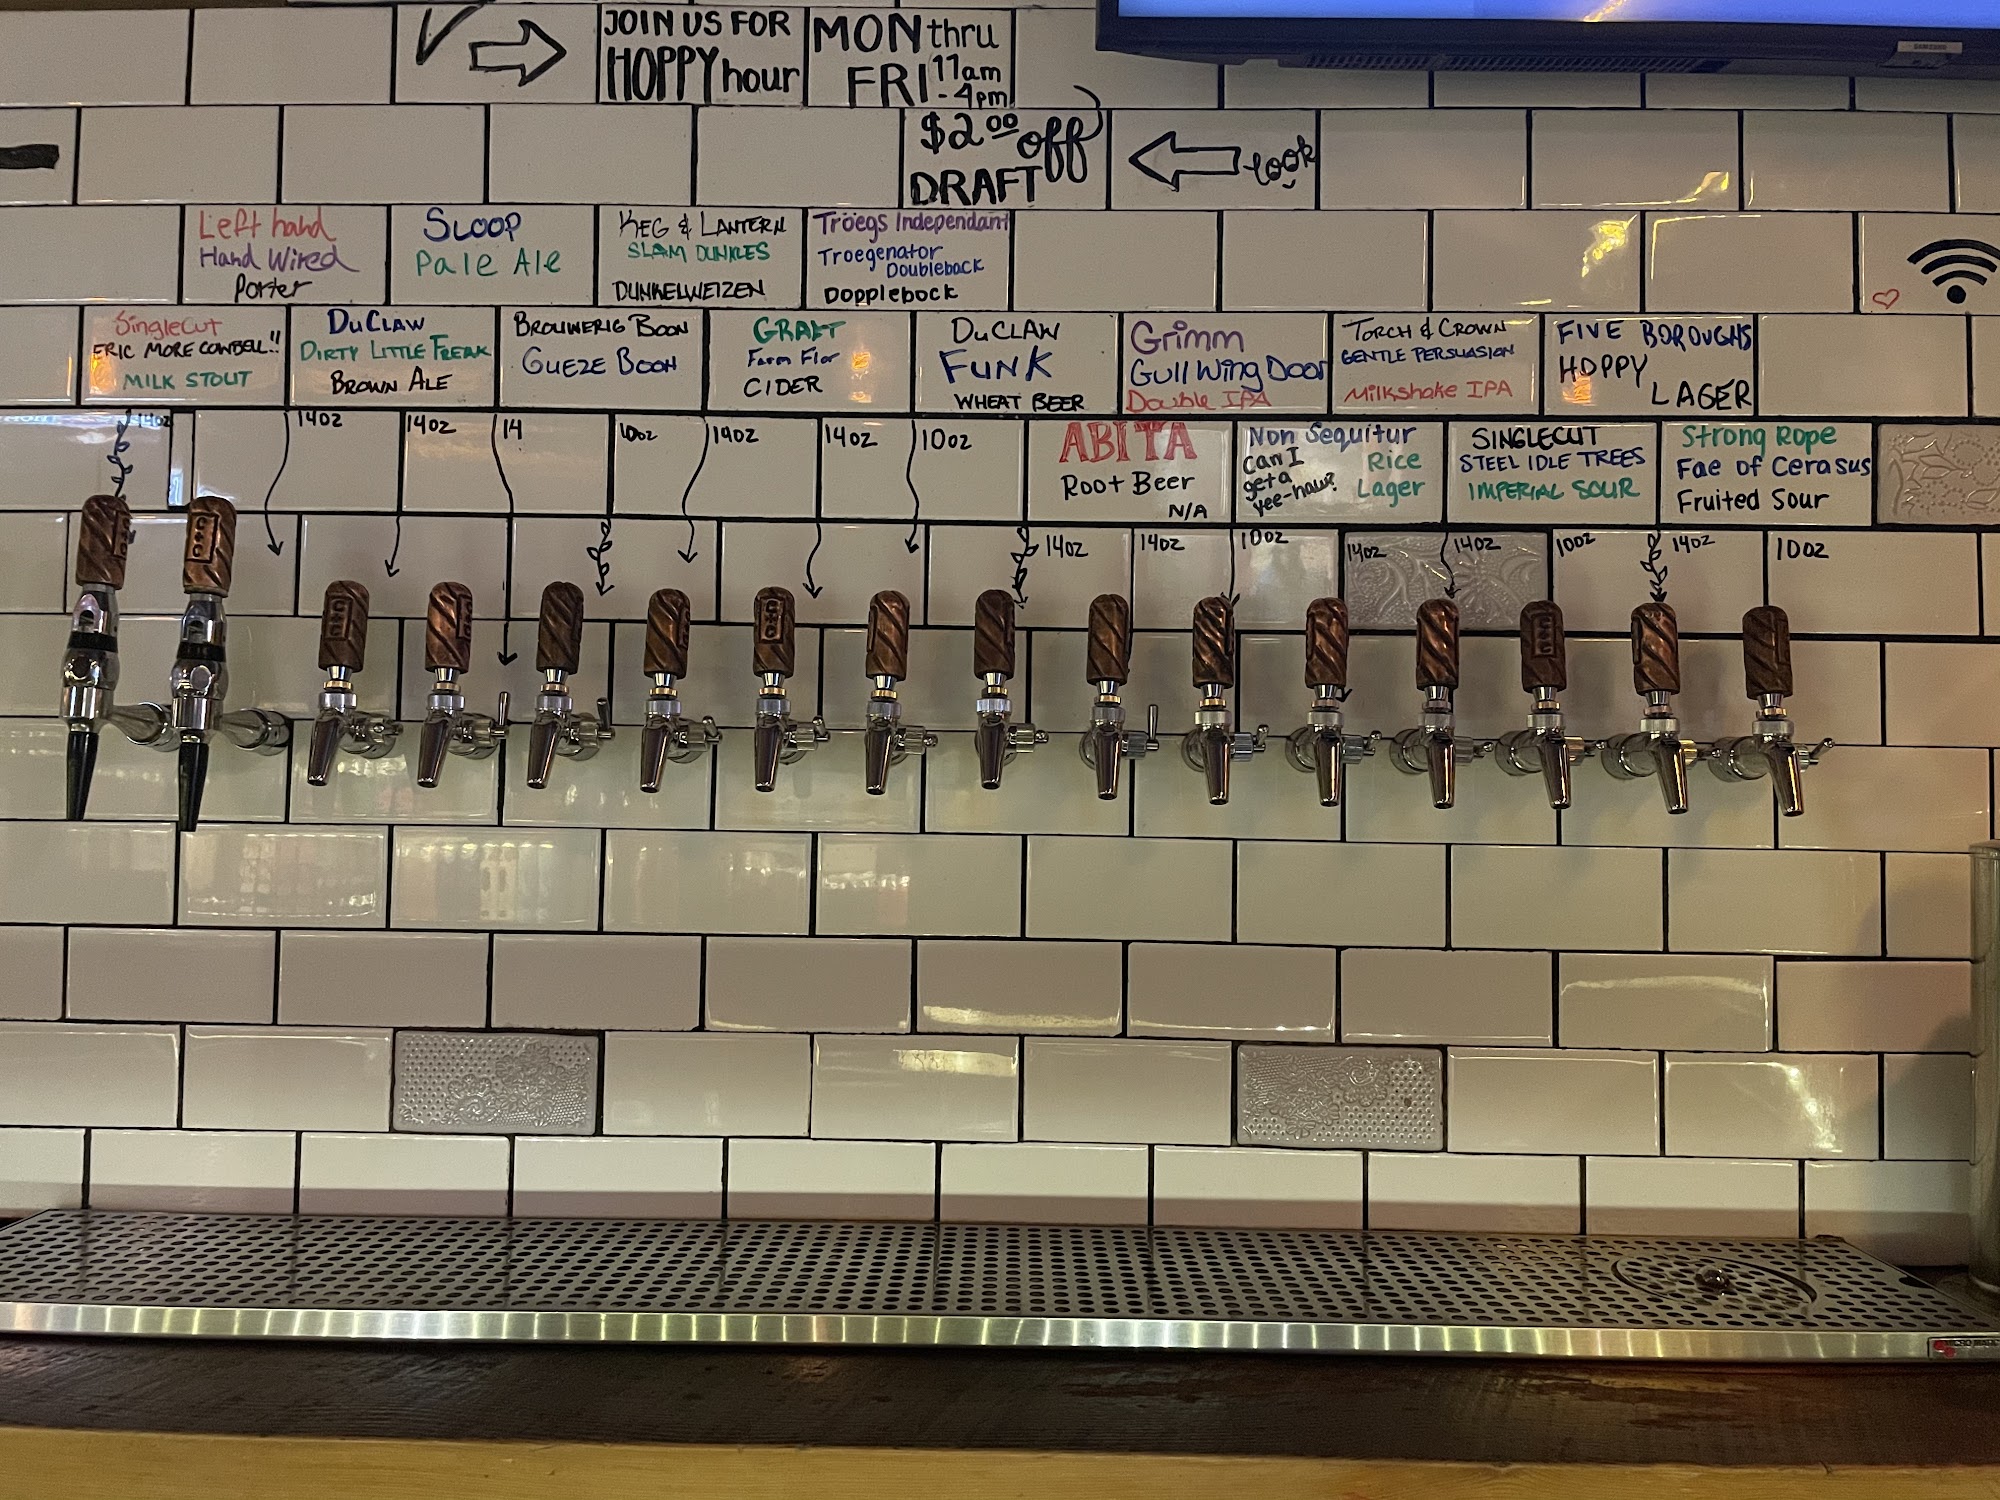 JOIN US FOR
HOPPY hour
MON thru
FRI 11am
- 4pm
$2.00 off
DRAFT
look
SAMSUNG
Left hand
Hand Wired
Porter
SLOOP
Pale Ale
KEG & LANTERN
SLAM DUNKLES
DUNKELWEIZEN
Tröegs Independant
Troegenator
Doubleback
Dopplebock
SingleCut
ERIC MORE COWBELL!!
MILK STOUT
DuClaw
DIRTY LITTLE FREAK
BROWN ALE
BROUWERIG BOON
GUEZE BOON
GRAFT
Farm Flor
CIDER
DuCLAW
FUNK
WHEAT BEER
Grimm
Gull Wing Door
Double IPA
TORCH & CROWN
GENTLE PERSUASION
Milkshake IPA
FIVE BOROUGHS
HOPPY
LAGER
14oz
14oz
14oz
14
10oz
14oz
14oz
10oz
ABITA
Root Beer
N/A
Non Sequitur
Can I
get a
yee-haw?
Rice
Lager
SINGLECUT
STEEL IDLE TREES
IMPERIAL SOUR
Strong Rope
Fae of Cerasus
Fruited Sour
14oz
14oz
10oz
14oz
14oz
10oz
14oz
10oz